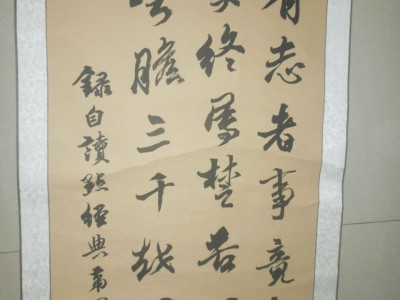 有志者事竟
终属楚苦
膽三千越
錄自讀點經典第